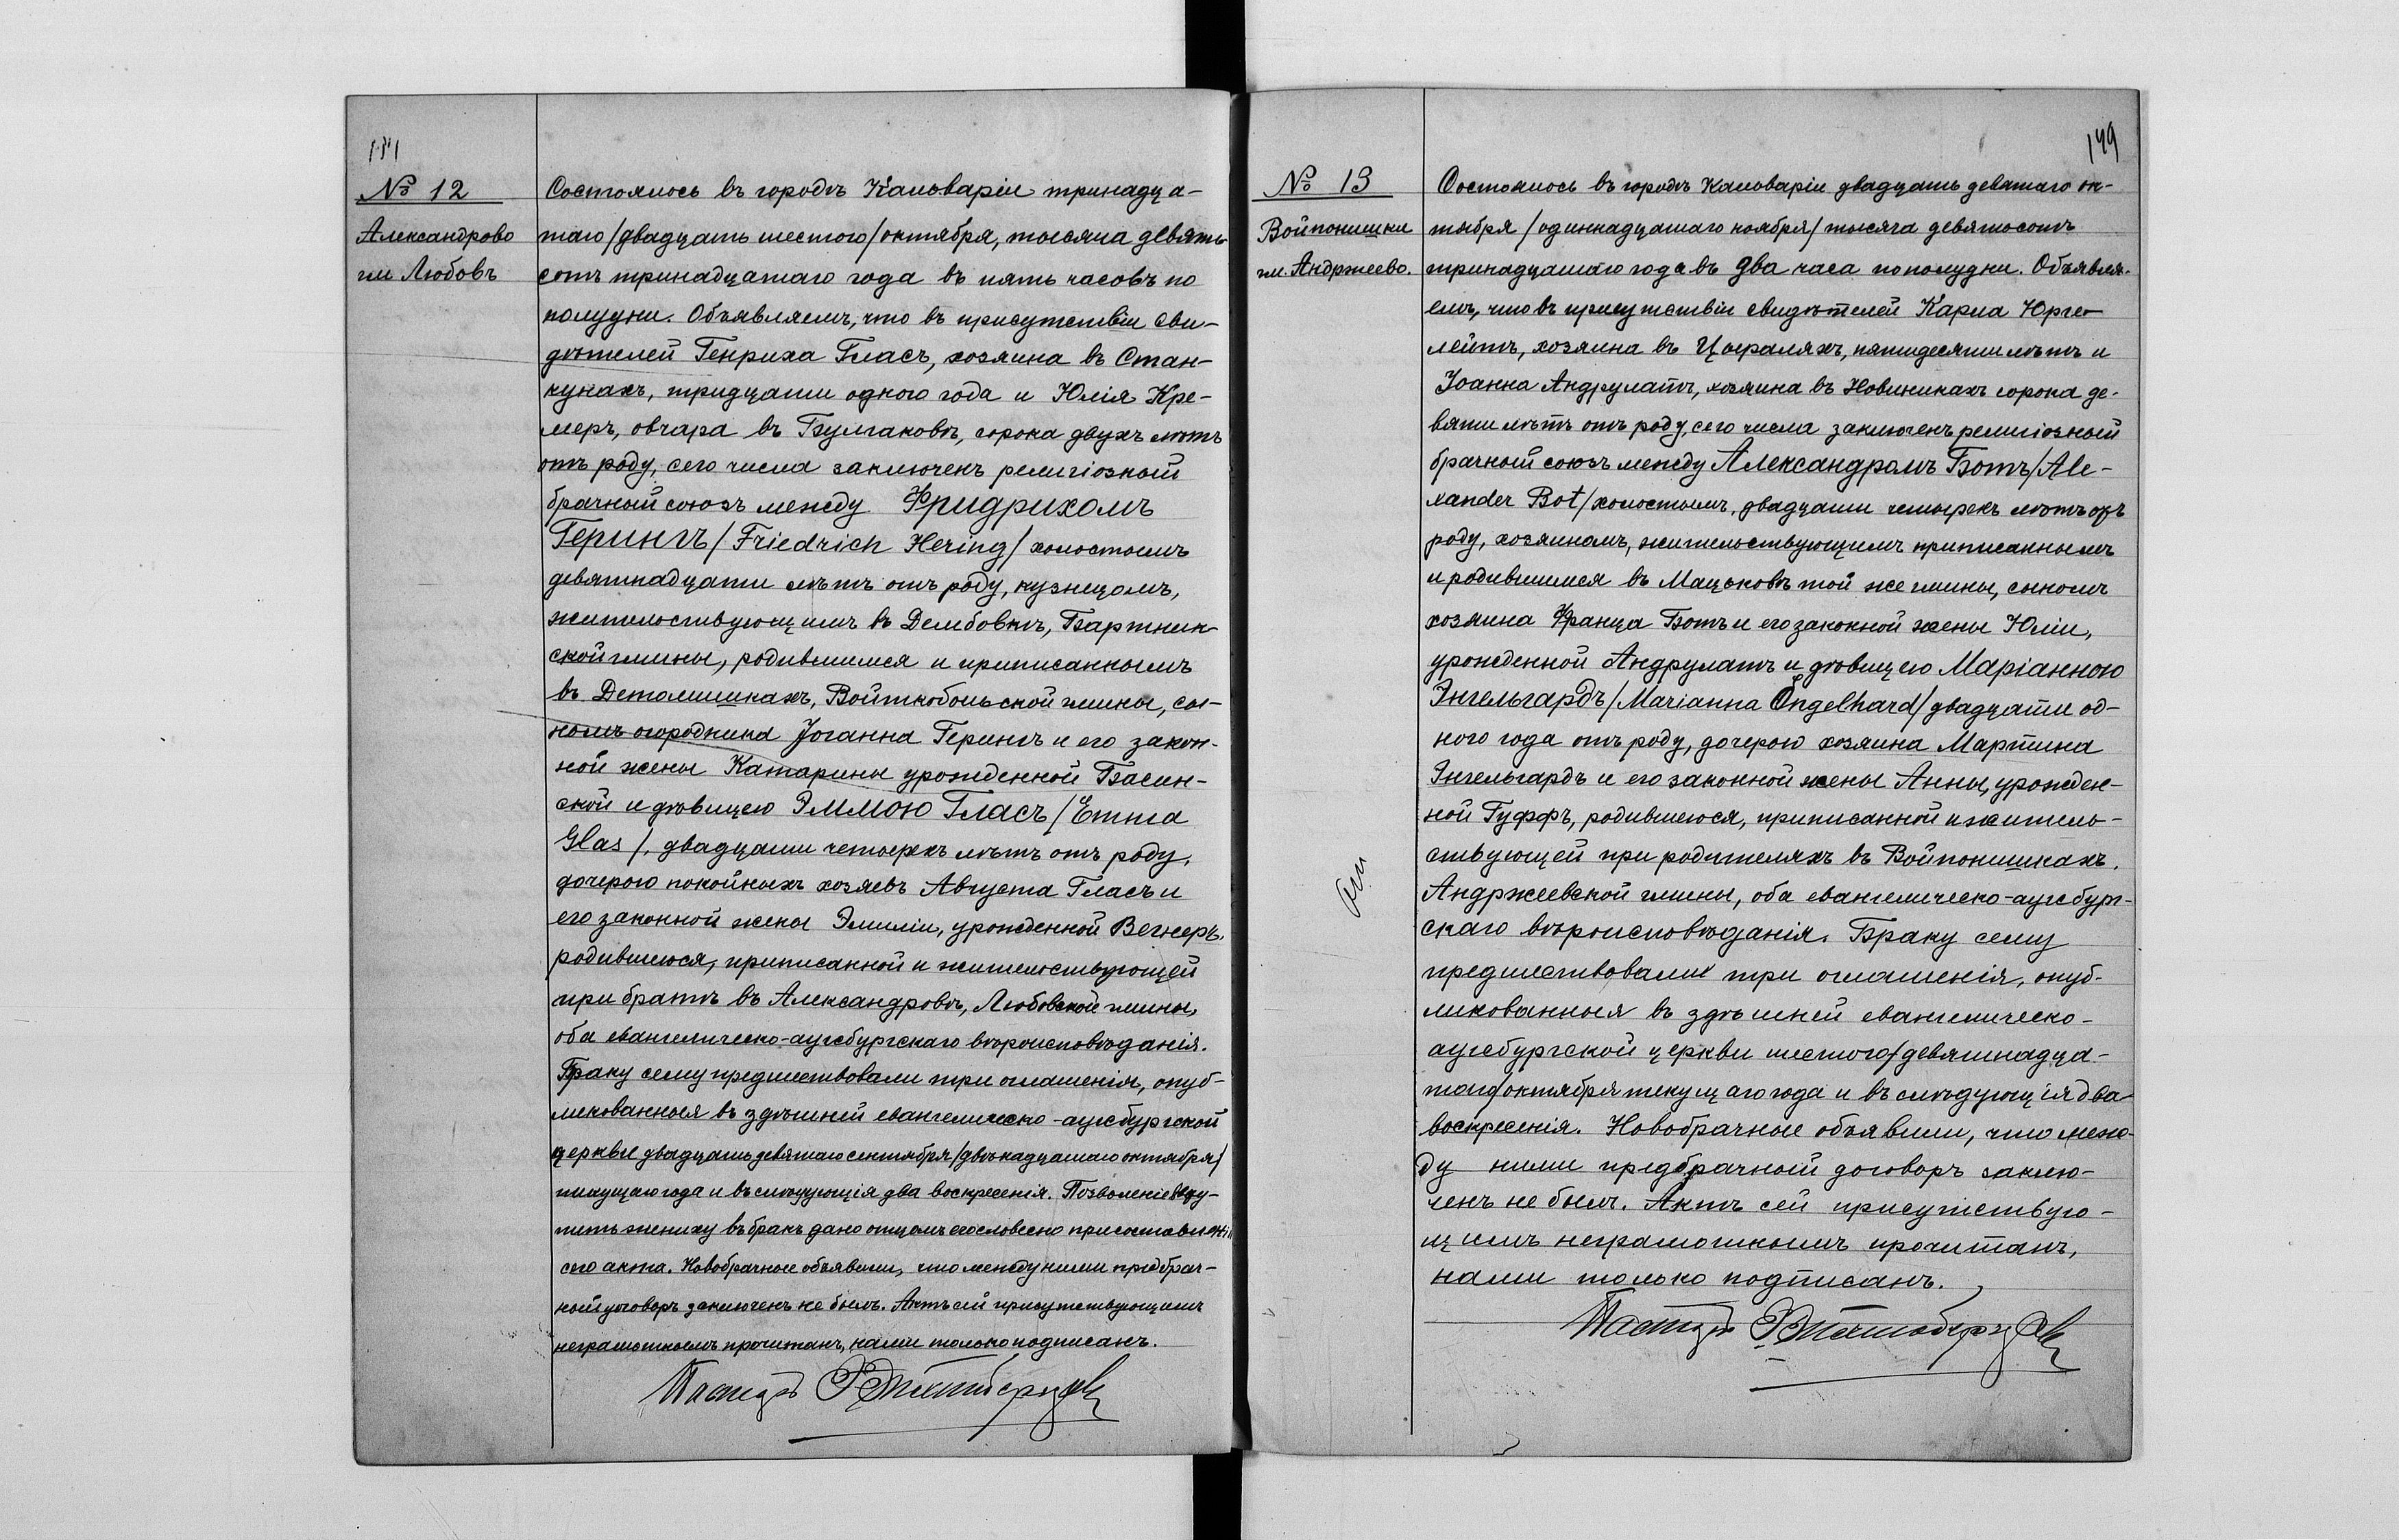 № 12
Александрово
гм. Любовъ
Состоялось въ городѣ Кальваріи тринадца-
таго/двадцать шестого/октября, тысяча девять-
сотъ тринадцатаго года въ пять часовъ по
полудни. Объявляемъ, что въ присутствіи сви-
дѣтелей Генриха Гласъ, хозяина въ Стан-
кунахъ, тридцати одного года и Юлія Кре-
меръ, овчара въ Булгаковѣ, сорока двухъ лѣтъ
отъ роду, сего числа заключенъ религіозный
брачный союзъ между Фридрихомъ
Герингъ/Friedrich Hering/холостымъ
девятнадцати лѣтъ отъ роду, кузнецомъ,
жительствующимъ въ Дембовкѣ, Бартник-
ской гмины, родившимся и приписаннымъ
въ Детомишкахъ, Войткобольской гмины, сы-
номъ огородника Іоганна Герингъ и его закон-
ной жены Катарины урожденной Басин-
ской и дѣвицею Эммою Гласъ/Emma
Glas/, двадцати четырехъ лѣтъ отъ роду,
дочерью покойныхъ хозяевъ Августа Гласъ и
его законной жены Эмиліи, урожденной Вегнеръ,
родившеюся, приписанной и жительствующей
при братѣ въ Александровѣ, Любовской гмины,
оба евангелическо-аугсбургскаго вѣроисповѣданія.
Браку сему предшествовали три оглашенія, опуб-
ликованныя въ здѣшней евангелическо-аугсбургской
церкви двадцать девятаго сентября/двѣнадцатаго октября/
текущаго года и въ слѣдующія два воскресенія. Позволеніе всту-
пить жениху въ бракъ дано отцомъ его словесно при составленіи
сего акта. Новобрачные объявили, что между ними предбрач-
ный договоръ заключенъ не былъ. Актъ сей присутствующимъ
неграмотнымъ прочитанъ, нами только подписанъ.
Пасторъ
149
№ 13
Войпонишки
гм. Андржеево.
Состоялось въ городѣ Кальваріи двадцать девятаго ок-
тября/одиннадцатаго ноября/тысяча девятьсотъ
тринадцатаго года въ два часа пополудни. Объявля-
емъ, что въ присутствіи свидѣтелей Карла Юрге-
лейтъ, хозяина въ Цыраляхъ, пятидесяти лѣтъ и
Іоанна Андрулатъ, хозяина въ Новиникахъ сорока де-
вяти лѣтъ отъ роду, сего числа заключенъ религіозный
брачный союзъ между Александромъ Ботъ/Ale-
xander Bot/холостымъ, двадцати четырехъ лѣтъ отъ
роду, хозяиномъ, жительствующимъ приписаннымъ
и родившимся въ Мацьковѣ той же гмины, сыномъ
хозяина Франца Ботъ и его законной жены Юліи,
урожденной Андрулатъ и дѣвицею Маріанною
Энгельгардъ/Marianna Engelhard/двадцати од-
ного года отъ роду, дочерью хозяина Мартина
Энгельгардъ и его законной жены Анны, урожден-
ной Гуффъ, родившеюся, приписанной и житель-
ствующей при родителяхъ въ Войпонишкахъ,
Андржеевской гмины, оба евангелическо-аугсбург-
скаго вѣроисповѣданія. Браку сему
предшествовали три оглашенія, опуб-
ликованныя въ здѣшней евангелическо-
аугсбургской церкви шестого/девятнадца-
таго/октября текущаго года и въ слѣдующія два
воскресенія. Новобрачные объявили, что меж-
ду ними предбрачный договоръ заклю-
ченъ не былъ. Актъ сей присутствую-
щимъ неграмотнымъ прочитанъ,
нами только подписанъ.
Пасторъ